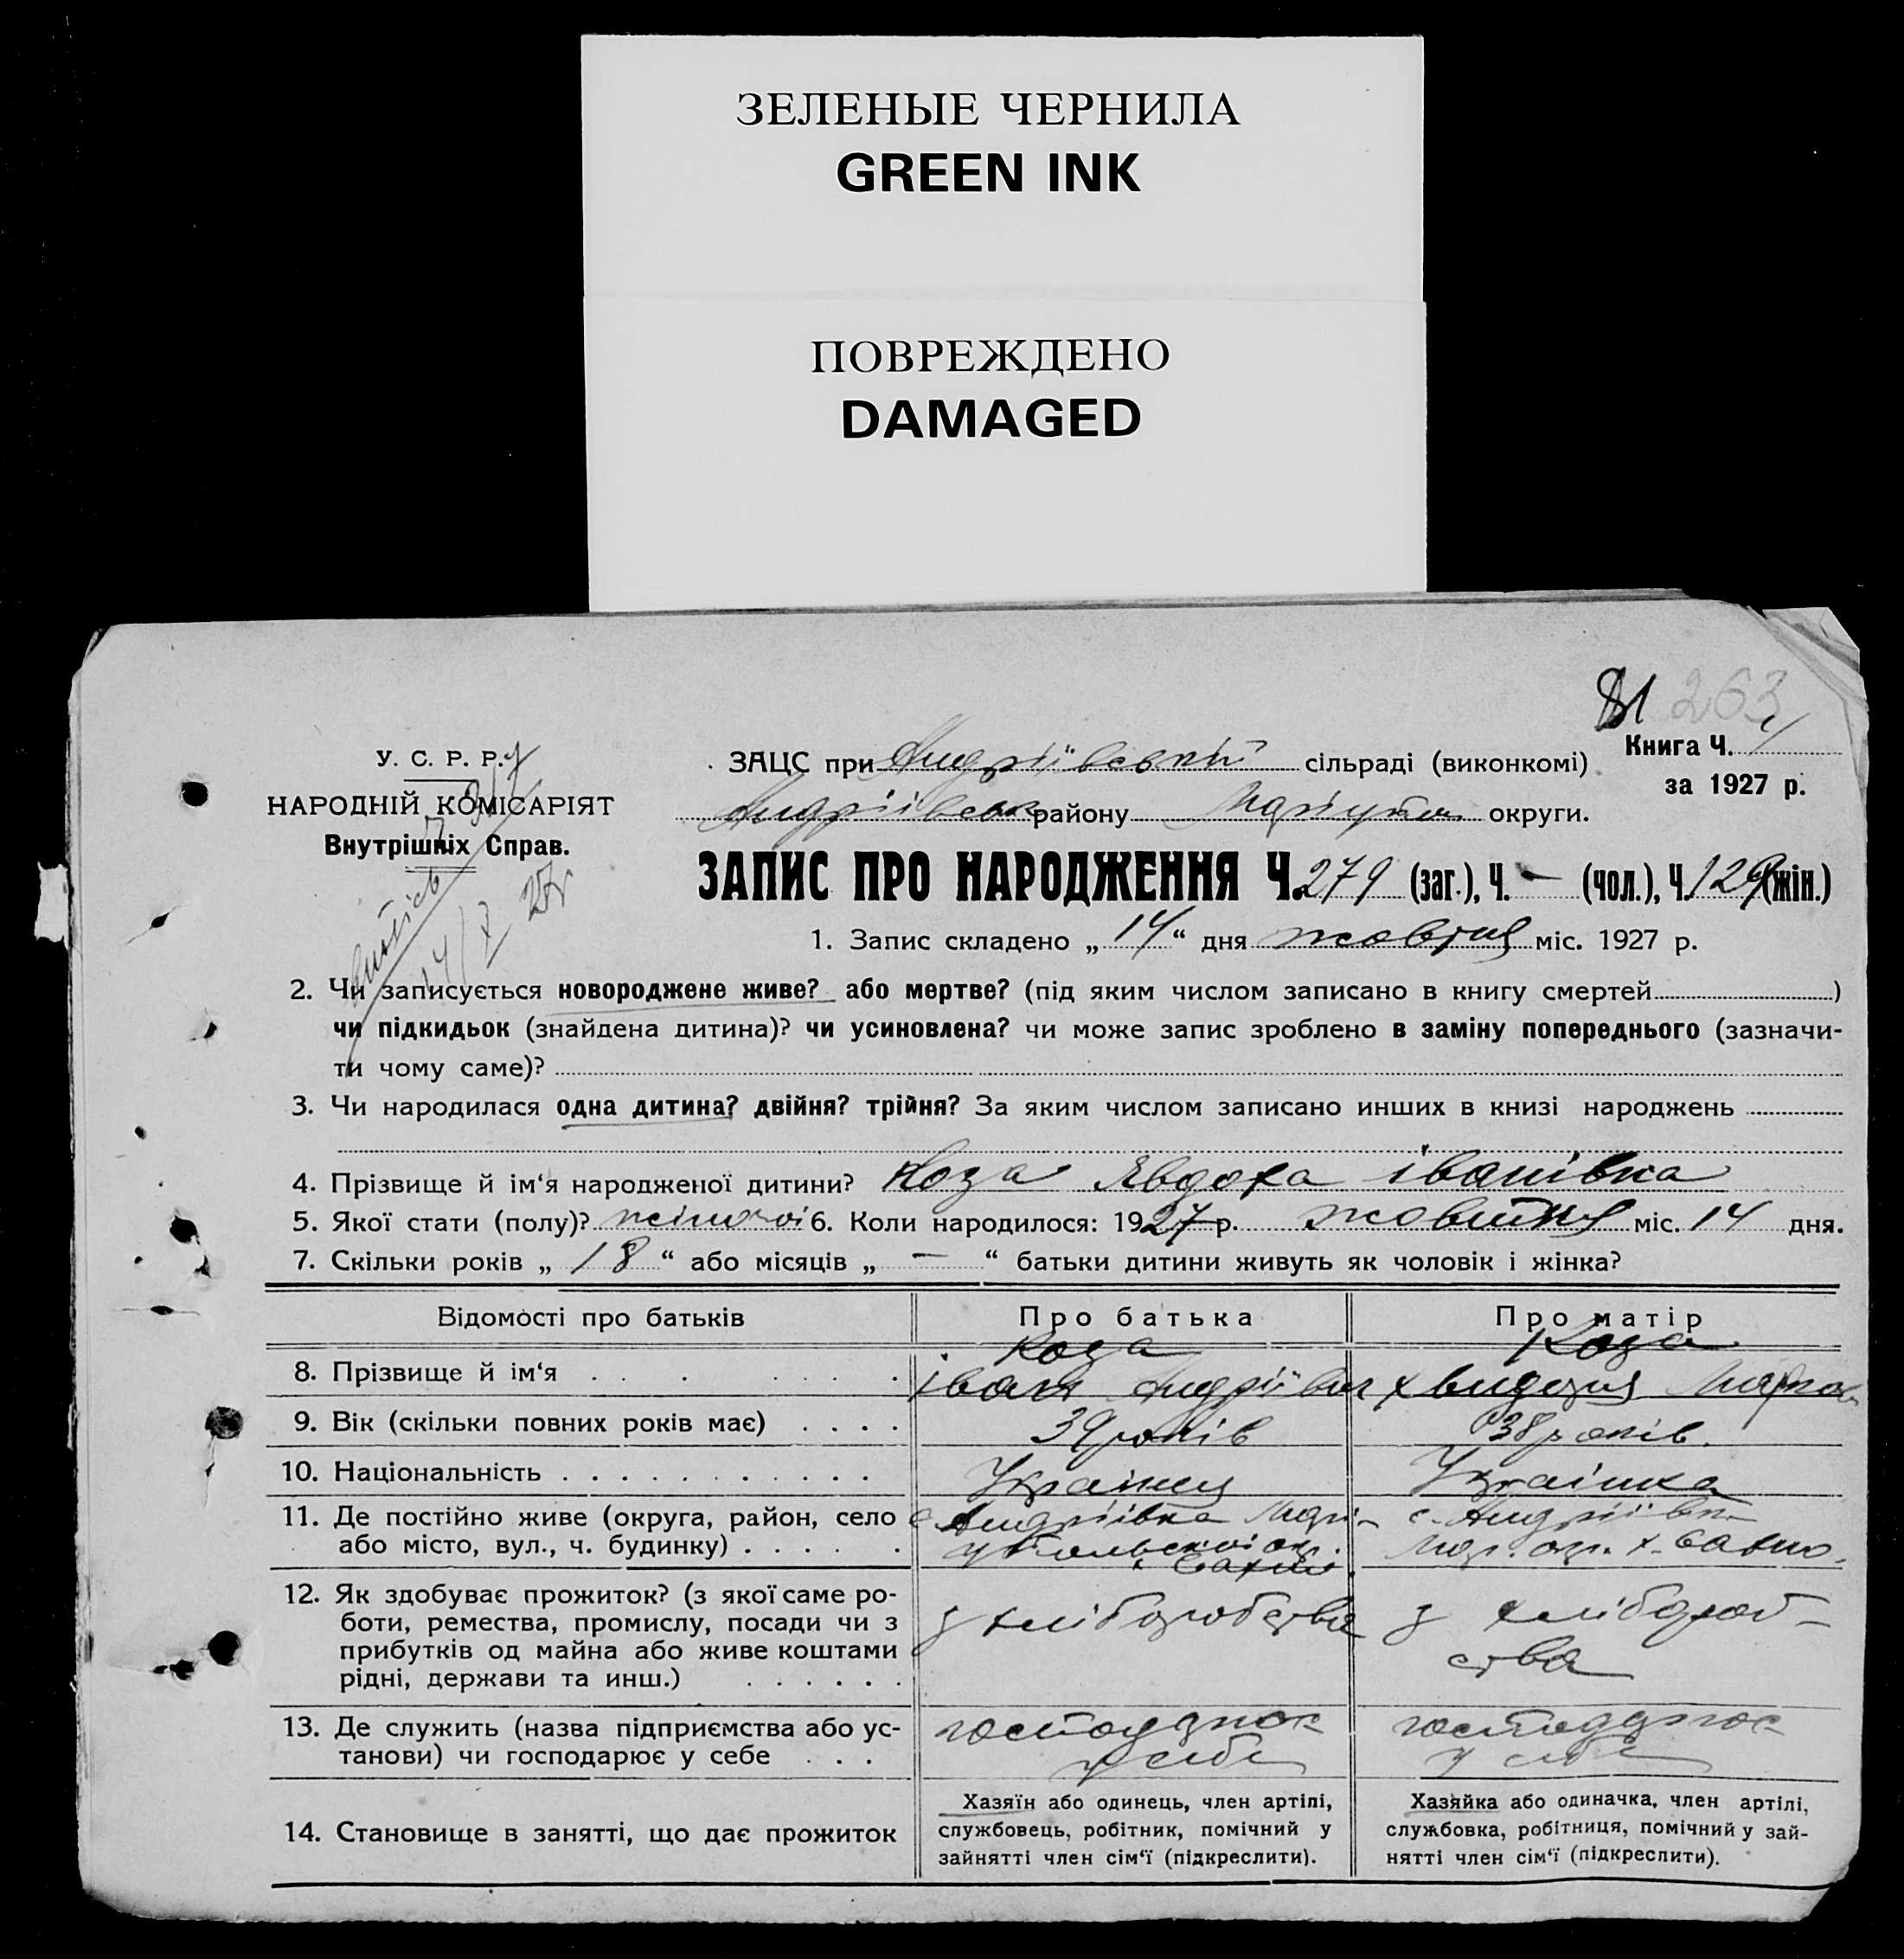 ЗЕЛЕНЫЕ ЧЕРНИЛА
GREEN INK
ПОВРЕЖДЕНО
DAMAGED
81 263
У. С. Р. Р.
НАРОДНІЙ КОМІСАРІЯТ
Внутрішніх Справ.
ЗАЦС при Андріївській сільраді (виконкомі)
Книга Ч. 1
за 1927 р.
Андріївськ району Маріупол округи.
ЗАПИС ПРО НАРОДЖЕННЯ Ч. 279 (заг.), Ч. — (чол.), Ч. 129 (жін.)
1. Запис складено „ 14 “ дня жовтня міс. 1927 р.
2. Чи записується новороджене живе? або мертве? (під яким числом записано в книгу смертей )
чи підкидьок (знайдена дитина)? чи усиновлена? чи може запис зроблено в заміну попереднього (зазначи-
ти чому саме)?
3. Чи народилася одна дитина? двійня? трійня? За яким числом записано инших в книзі народжень
4. Прізвище й ім‘я народженої дитини? Коза Явдоха Іванівна
5. Якої стати (полу)? жіночої 6. Коли народилося: 1927 р. жовтня міс. 14 дня.
7. Скільки років „ 18 “ або місяців „ — “ батьки дитини живуть як чоловік і жінка?
Відомості про батьків Про батька Про матір
Коза Коза
8. Прізвище й ім‘я Іван Андрієвич
9. Вік (скільки повних років має) 39 років 38 років.
10. Національність Українец Українка
11. Де постійно живе (округа, район, село с. Андріївка Марі- с. Андріївка
або місто, вул., ч. будинку) упольської окр. Мар. окр.
12. Як здобуває прожиток? (з якої саме ро-
боти, ремества, промислу, посади чи з з хліборобства з хлібороб-
прибутків од майна або живе коштами ства
рідні, держави та инш.)
13. Де служить (назва підприємства або ус-
танови) чи господарює у себе у себе у себе
14. Становище в занятті, що дає прожиток
Хазяїн або одинець, член артілі,
службовець, робітник, помічний у
зайнятті член сім‘ї (підкреслити).
Хазяйка або одиначка, член артілі,
службовка, робітниця, помічний у зай-
нятті член сім‘ї (підкреслити).